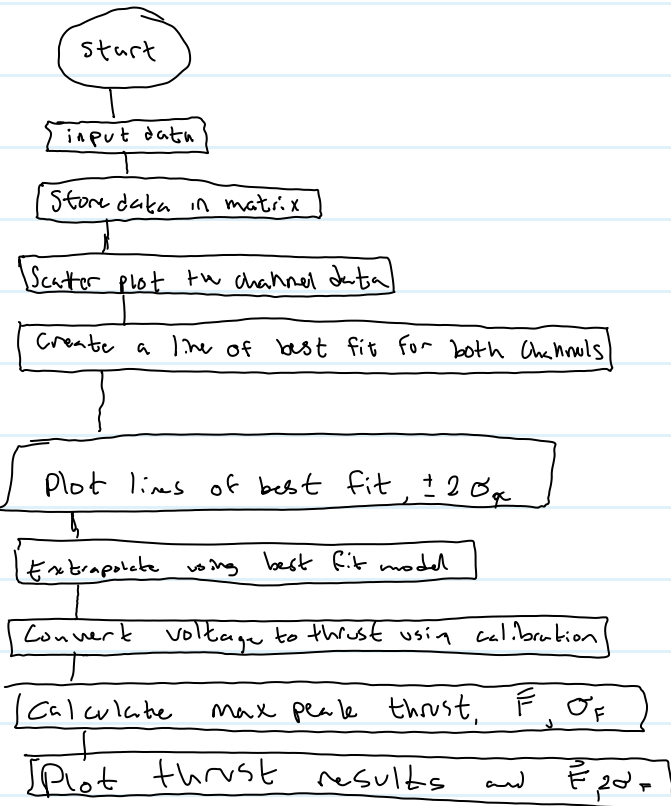 Start
input data
Store data in matrix
Scatter plot the channel data
Create a line of best fit for both Channels
Plot lines of best fit, ± 2 σ
Extrapolate using best fit model
Convert voltage to thrust usin calibration
Calculate max peak thrust, F̄, σ_F
Plot thrust results and F̄, 2σ_F